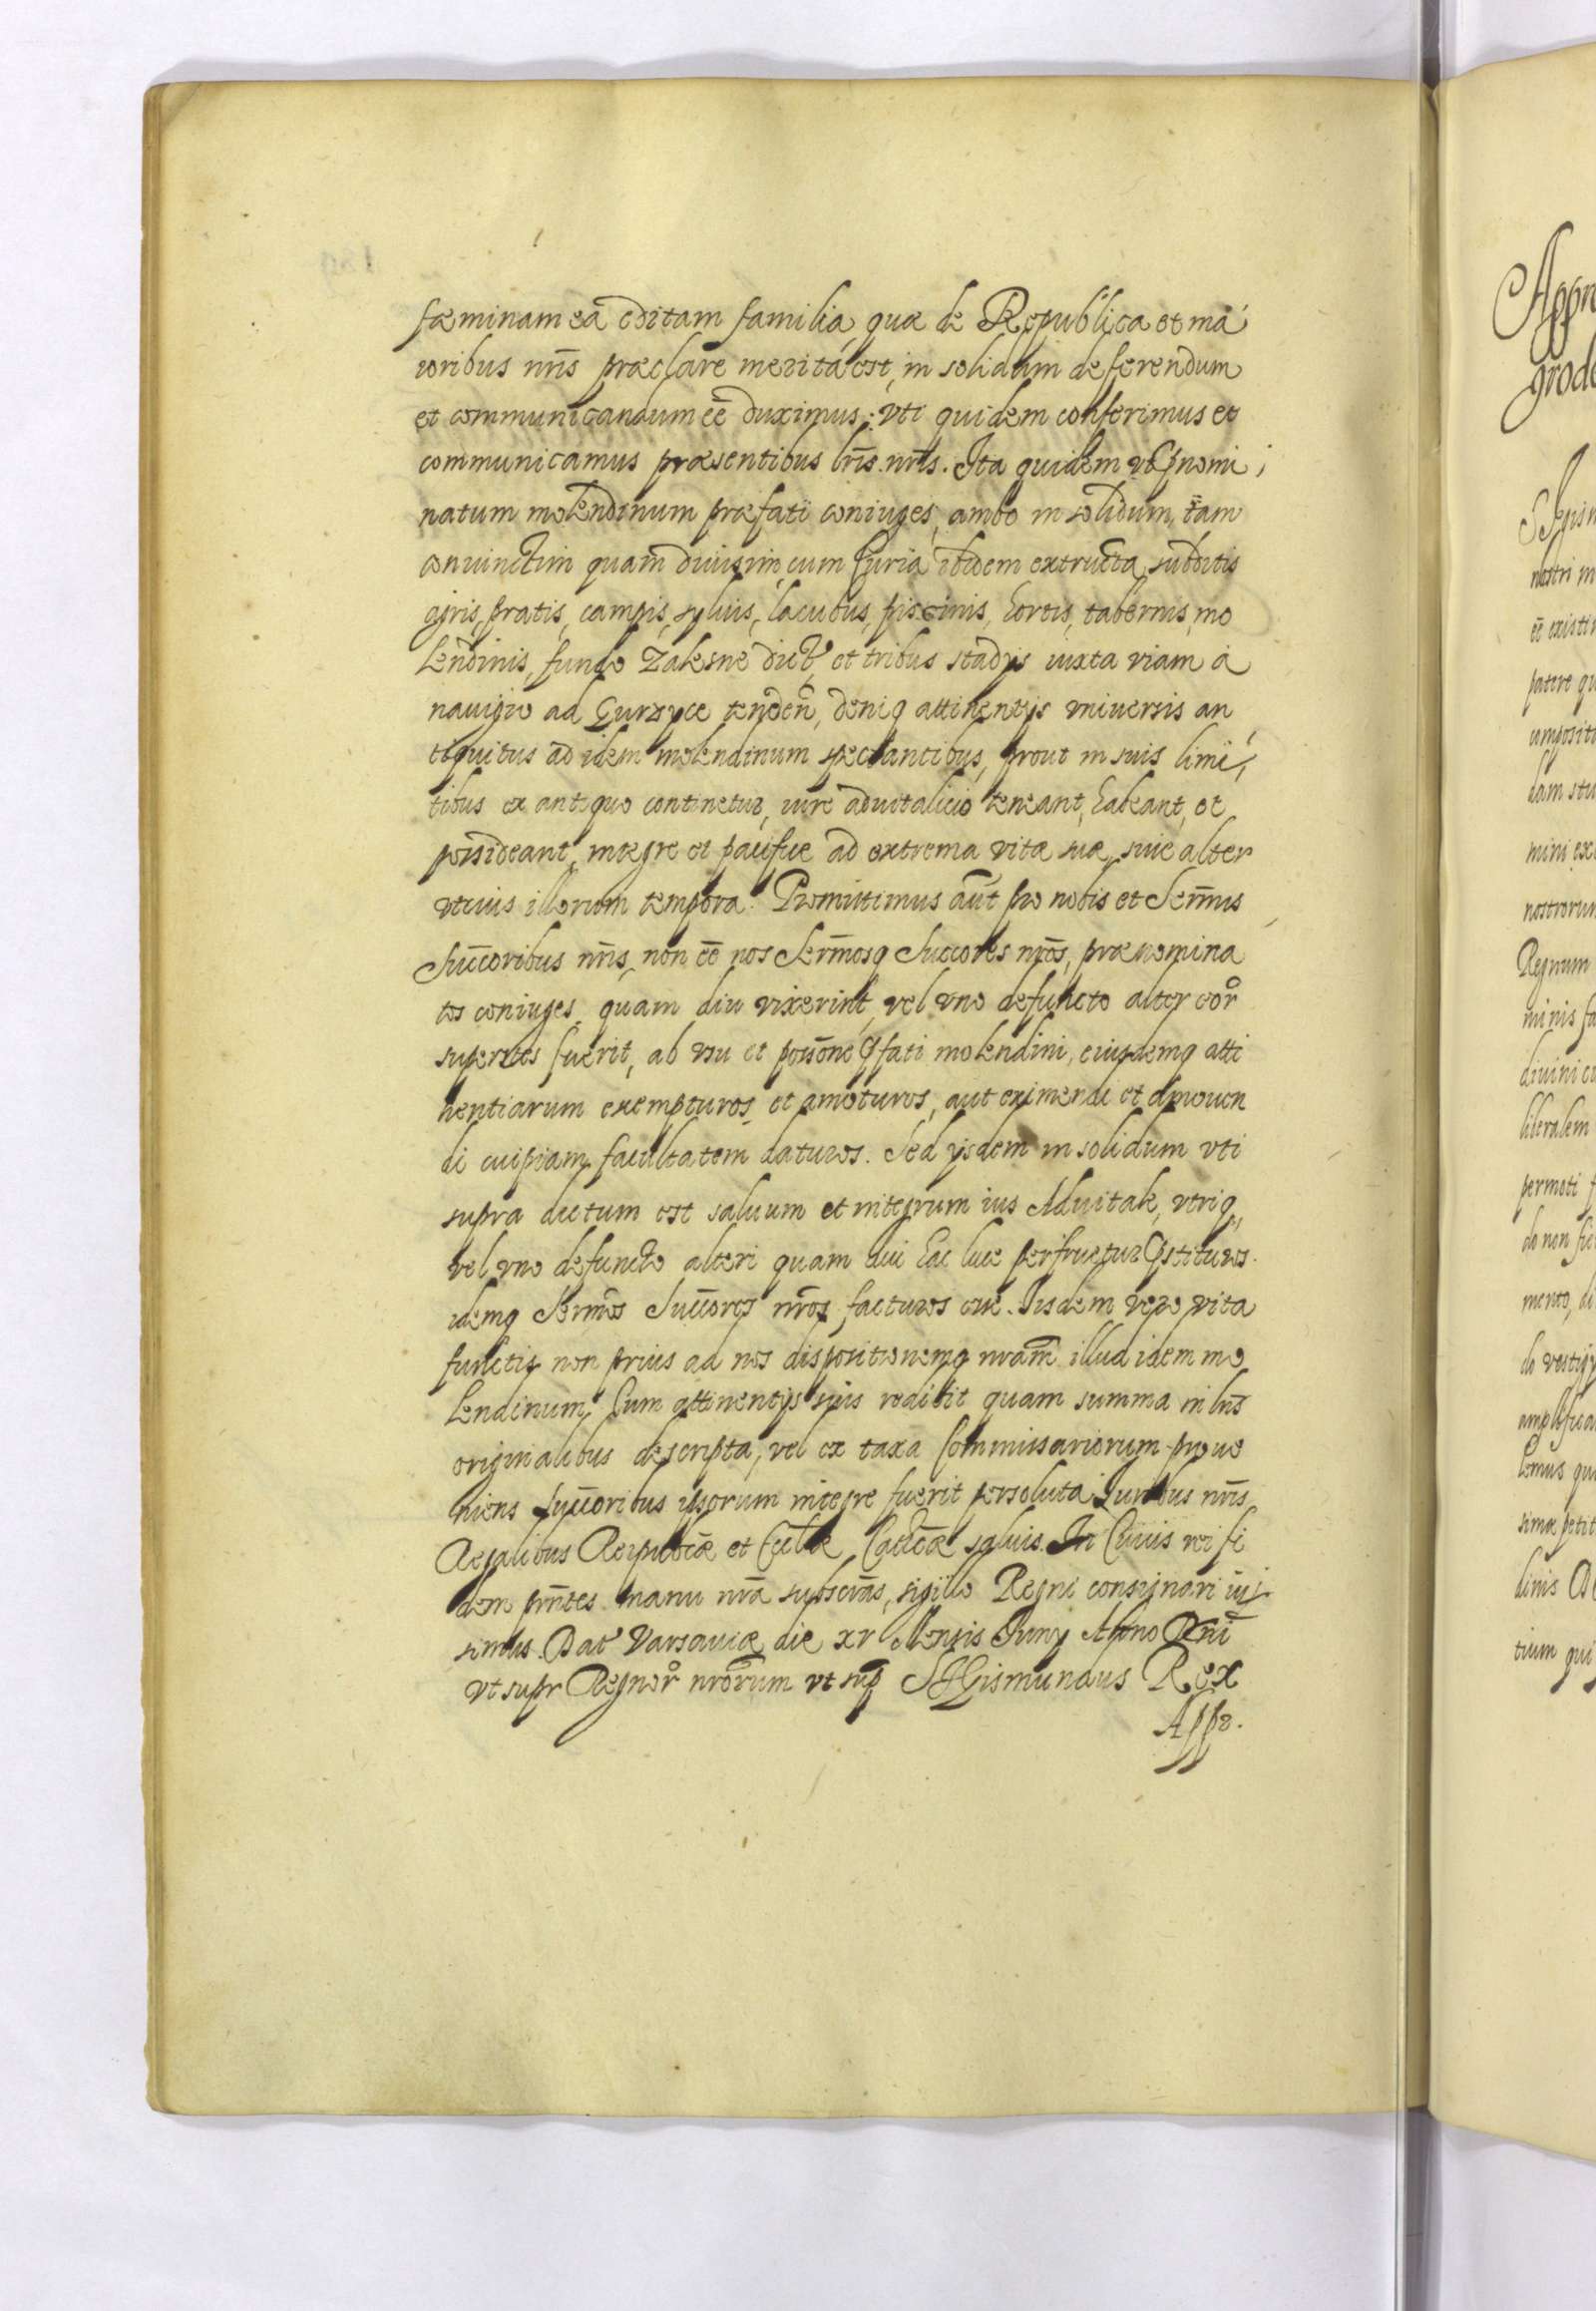 fæminam eâ editam familia, quæ de Republica et ma
ioribus nr̃is præclare merita est, in solidum deferendum
et communicandum eē duximus: vti quidem conferimus et
communicamus præsentibus lr̃is nr̃is. Ita quidem vt pnomi
natum molendinum præfati coniuges, ambo in solidum, tam
coniunctim quam diuisim, cum Curia ibidem extructa, subditis
agris, pratis, campis, syluis, lacubus, piscinis, hortis, tabernis, mo
lendinis, fundo Zalesne dict, et tribus stadijs iuxta viam a
nauigio ad Gurzyce tenden̄, deniq attinentijs vniuersis an
tiquitus ad idem molendinum spectantibus, prout in suis limi
tibus ex antiquo continetur, iure aduitalicio teneant, habeant, et
possideant, integre et pacifice ad extrema vitæ suæ, siue alter
vtrius illorum tempora. Promittimus aūt pro nobis et Serm̄is
Succ̄oribus nr̃is, non eē nos Serm̄osq Succ̄ores nr̃os, prænomina
tos coniuges, quam diu vixerint, vel vno defuncto alter eor̊
superstes fuerit, ab vsu et possōne pfati molendini, eiusdemq atti
nentiarum exempturos et amoturos, aut eximendi et amouen
di cuipiam facultatem daturos. Sed ijsdem in solidum vti
supra dictum est saluum et integrum ius Aduitale, vtriq,
vel vno defuncto alteri quam diu hac luce perfruetur pstituros.
idemq Serm̄os Succ̄ores nr̃os facturos esse. Iisdem vero vita
functis non prius ad nos dispositionemq nr̃am illud idem mo
lendinum Cum attinentijs suis redibit quam summa in lr̃is
originalibus descripta, vel ex taxa Commissariorum proue
niens succ̄oribus ipsorum integre fuerit persoluta. Iuribus nr̃is
Regalibus Reipub͞cæ et Ecc͞læ Cat͞cæ saluis. In Cuius rei fi
dem pn̄tes manu nr̃a subscr̄as, sigillo Regni consignari iuſ
simus. Dat Varsauiæ die xv Mensis Iunij Anno Dn̄i
vt supr Regnor̊ nr̃orum vt sup Sigismundus Rex
Appr.